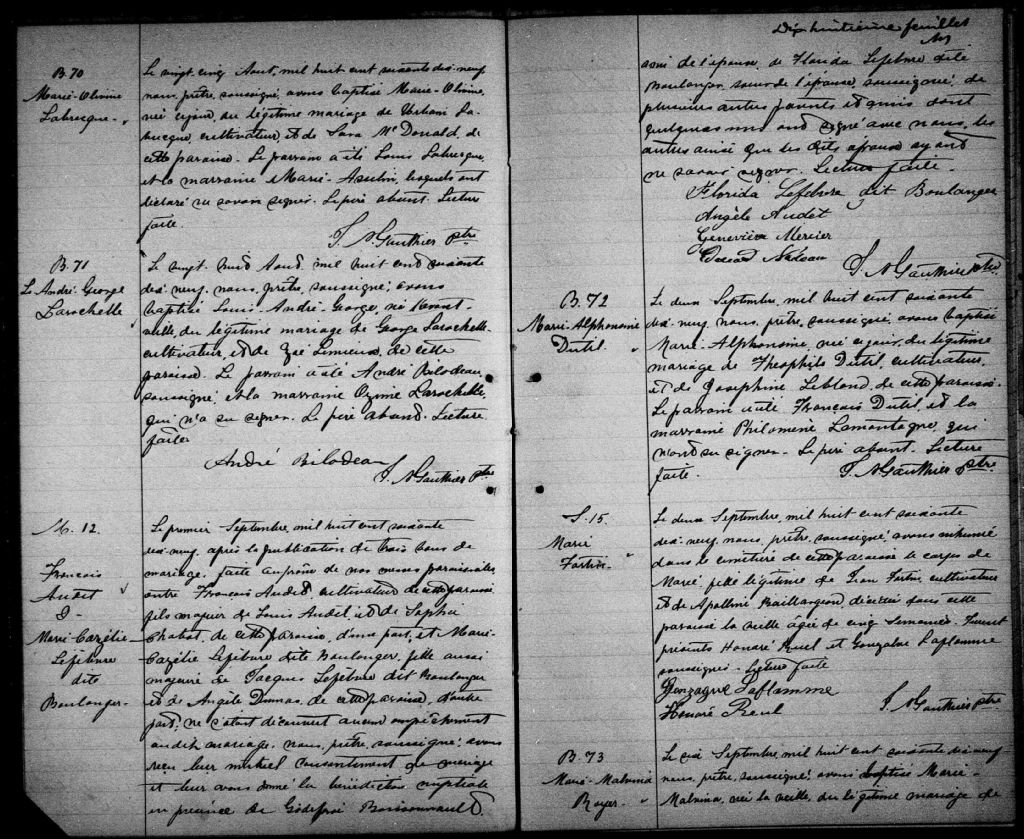 B. 70
Marie-Olivine
Labrecque
Le vingt cinq Aout, mil huit cent soixante dix-neuf
nous prêtre, soussigné, avons baptisé Marie-Olivine,
née ce jour, du légitime mariage de Urbain La-
brecque, cultivateur, et de Sara McDonald, de
cette paroisse. Le parrain a été Louis Labrecque,
et la marraine Marie Asselin, lesquels ont
déclaré ne savoir signer. Le père absent. Lecture
faite.
J. N. Gauthier Ptre
B. 71
Ls André-George
Larochelle
Le vingt huit Aout mil huit cent soixante
dix-neuf, nous, prêtre, soussigné, avons
baptisé Louis-André-George, né
veille du légitime mariage de George Larochelle
cultivateur, et de Zoé Lemieux, de cette
paroisse. Le parrain a été André Bilodeau,
soussigné, et la marraine Ozime Larochelle,
qui n'a su signer. Le père absent. Lecture
faite.
André Bilodeau
J. N. Gauthier Ptre
M. 12
Francois
Audet
&
Marie-Cazélie
Lefebvre
dite
Boulanger
Le premier Septembre, mil huit cent soixante
dix-neuf, après la publication de trois bans de
mariage, faite au prône de nos messes paroissiales,
entre Francois Audet cultivateur, de cette paroisse,
fils majeur de Louis Audet, et de Sophie
Chabot, de cette paroisse, d'une part, et Marie-
Cazélie Lefebvre dite Boulanger, fille aussi
majeure de Jacques Lefebvre dit Boulanger
et de Angèle Dumas, de cette paroisse, d'autre
part; ne s'étant découvert aucun empêchement
au dit mariage, nous, prêtre, soussigné, avons
reçu leur mutuel consentement de mariage
et leur avons donné la bénédiction nuptiale
en présence de Godefroi Boissonnault &
Dix huitième feuillet
ami de l'épouse, de Florida Lefebvre dite
Boulanger, soeur de l'épouse, soussignée, de
plusieurs autres parents et amis dont
quelques uns ont signé avec nous, les
autres ainsi que les dits époux ayant
ne savoir signer. Lecture faite.
Florida Lefebvre dit Boulanger
Angèle Audet
Geneviève Mercier
Edouard Nadeau
J. N. Gauthier Ptre
B. 72
Marie-Alphonsine
Dutil
Le deux Septembre, mil huit cent soixante
dix-neuf, nous, prêtre, soussigné, avons baptisé
Marie-Alphonsine, née ce jour, du légitime
mariage de Théophile Dutil, cultivateur,
et de Josephine Leblond, de cette paroisse.
Le parrain a été Francois Dutil, et la
marraine Philomene Lamontagne, qui
n'ont su signer. Le père absent. Lecture
faite.
J. N. Gauthier Ptre
S. 15.
Marie
Fortin
Le deux Septembre, mil huit cent soixante
dix-neuf, nous, prêtre, soussigné, avons inhumé
dans le cimetière de cette paroisse le corps de
Marie, fille légitime de Jean Fortin, cultivateur
et de Apolline Baillargeon, décédée dans cette
paroisse la veille âgée de cinq semaines. Furent
présents Honoré Ruel et Gonzague Laflamme
soussignés. Lecture faite
Gonzague Laflamme
Honoré Reul
J. N. Gauthier ptre
B. 73
Marie-Malvina
Royer
Le six Septembre, mil huit cent soixante dix-neuf
nous, prêtre, soussigné, avons baptisé Marie-
Malvina, née la veille, du légitime mariage de